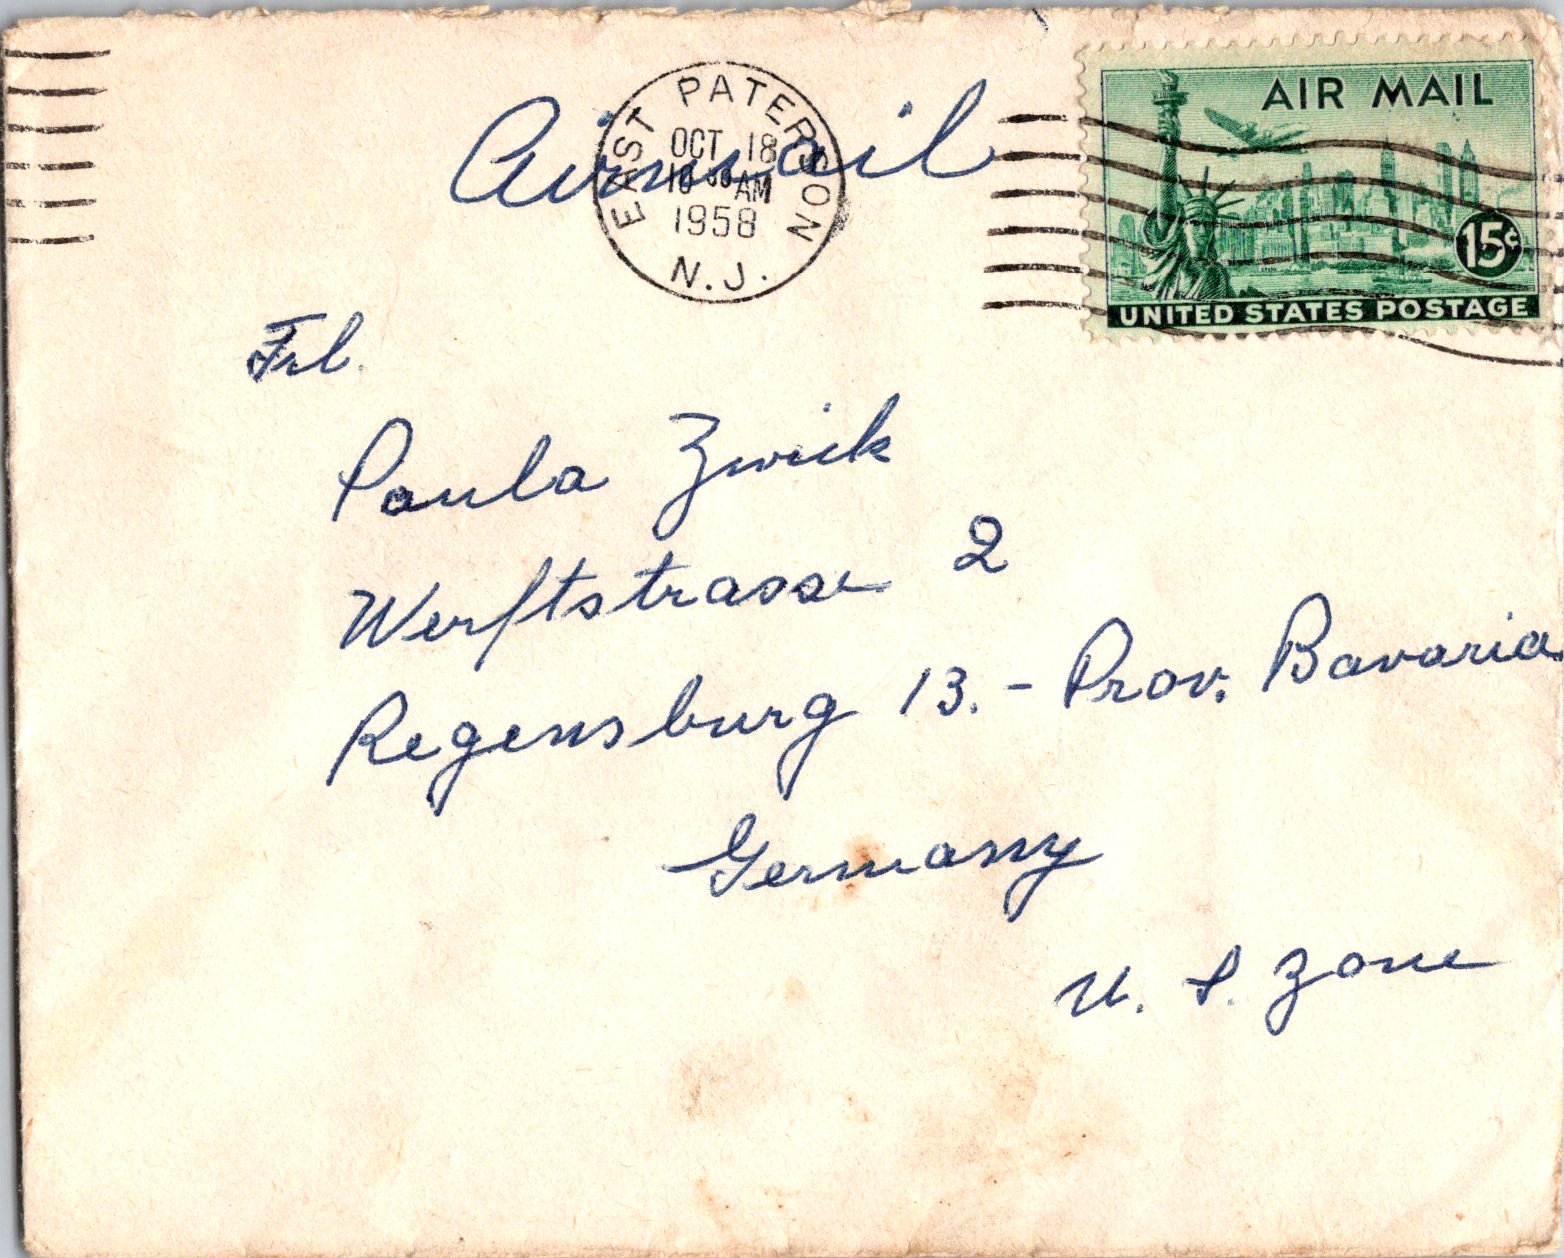 EAST PATERSON
OCT 18
AM
1958
N.J.
Airmail
AIR MAIL
15¢
UNITED STATES POSTAGE
Frl.
Paula Zwick
Werftstrasse 2
Regensburg 13. - Prov. Bavaria
Germany
U. S. Zone